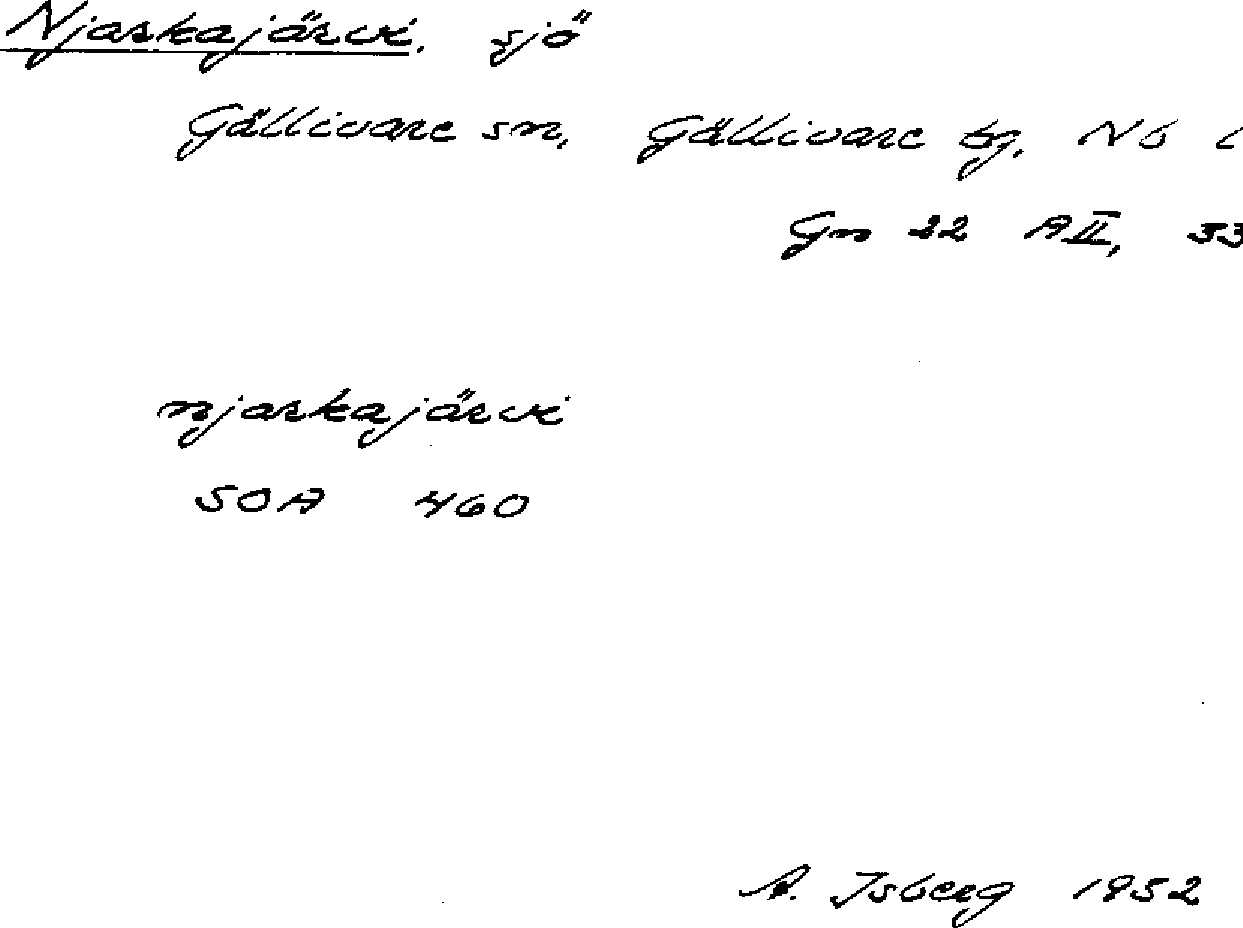 Njarkajärvi, sjö
Gällivare sn, Gällivare tg, Nb l
Gn 22 AII, 33
njarkajärvi
SOA 460
A. Isberg 1952